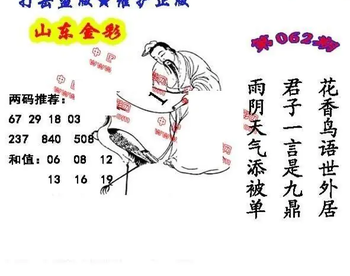 打击盗版 维护正版
山东金彩
第062期
两码推荐：
67 29 18 03
237 840 508
和值： 06 08 12
13 16 19
花香鸟语世外居
君子一言是九鼎
雨阴天气添被单